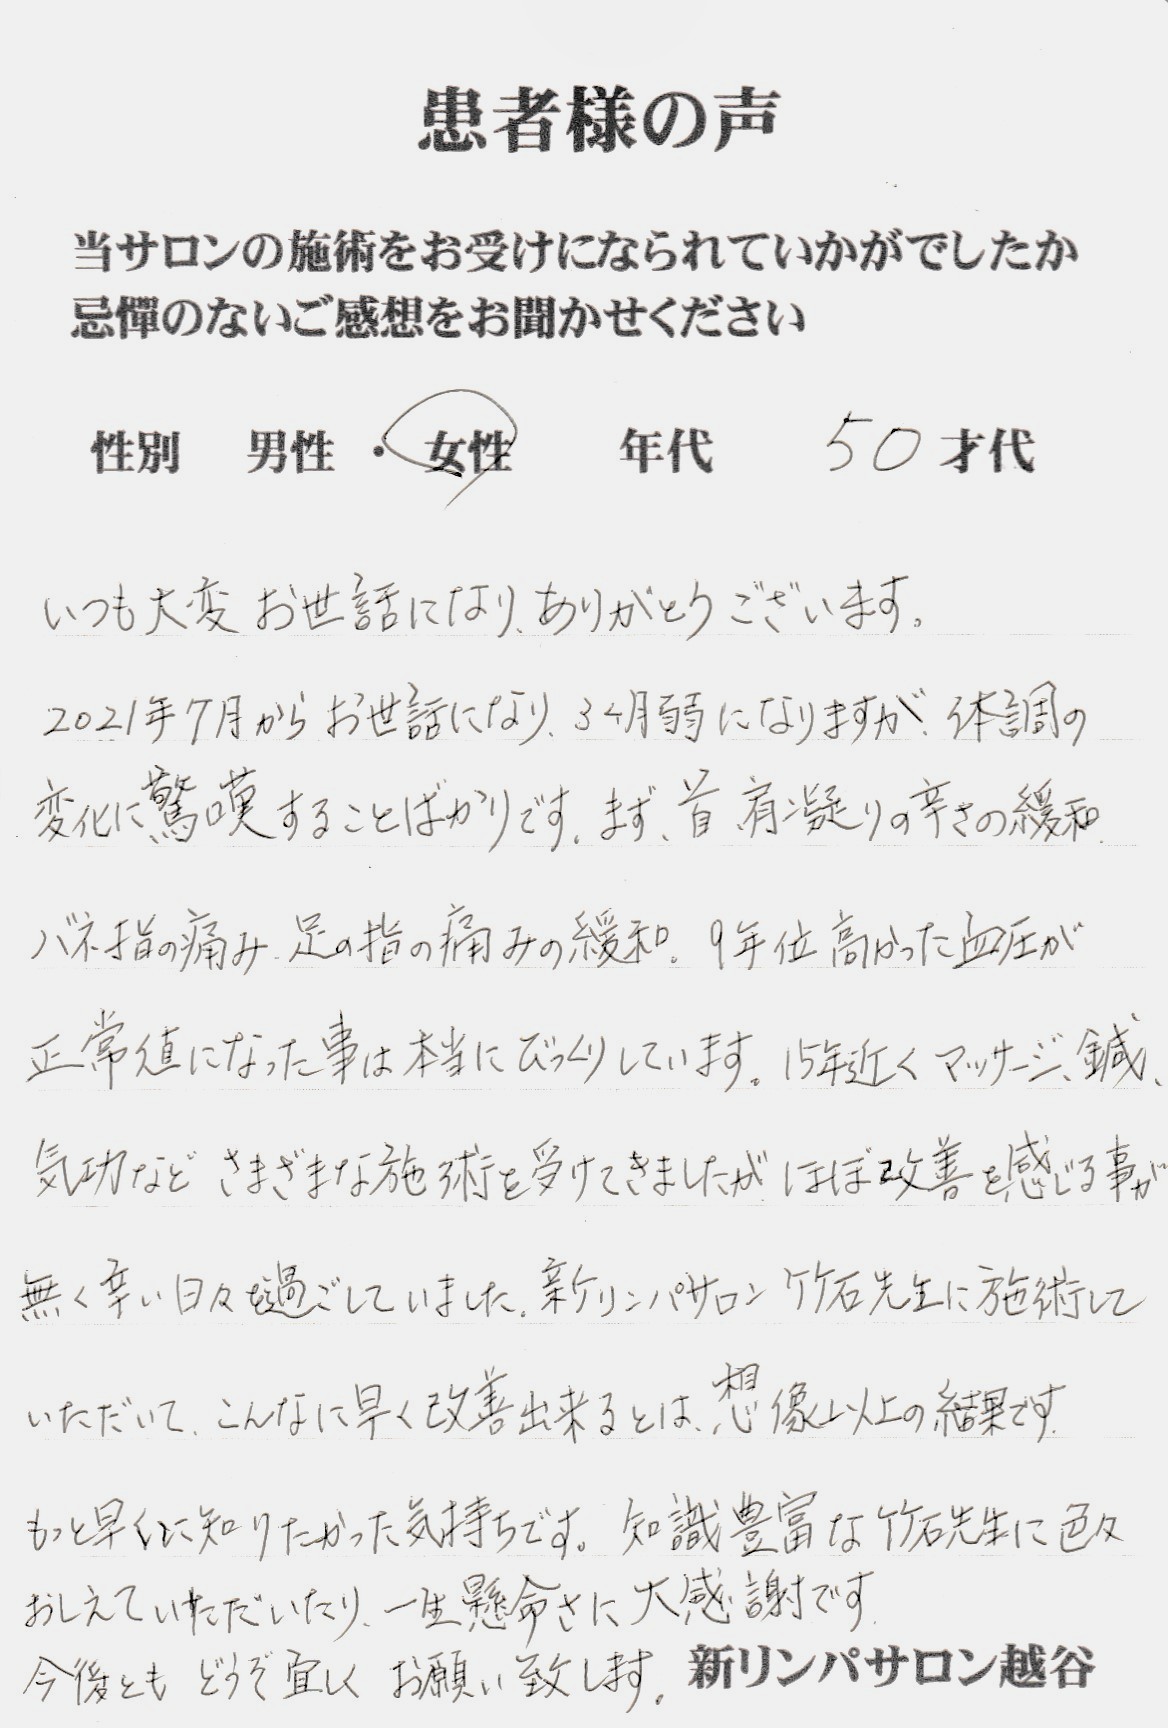 患者様の声
当サロンの施術をお受けになられていかがでしたか
忌憚のないご感想をお聞かせください
性別 男性・女性 年代 50才代
いつも大変お世話になり、ありがとうございます。
2021年7月からお世話になり、3ヶ月弱になりますが、体調の
変化に驚嘆することばかりです。まず、首、肩凝りの辛さの緩和、
バネ指の痛み、足の指の痛みの緩和。9年位高かった血圧が
正常値になった事は本当にびっくりしています。15年近くマッサージ、鍼、
気功など さまざまな施術を受けてきましたが ほぼ改善を感じる事が
無く辛い日々を過ごしていました。新リンパサロン 竹石先生に施術して
いただいて、こんなに早く改善出来るとは、想像以上の結果です。
もっと早くに知りたかった気持ちです。知識豊富な竹石先生に色々
おしえていただいたり、一生懸命さに大感謝です。
今後とも どうぞ宜しく お願い致します。 新リンパサロン越谷